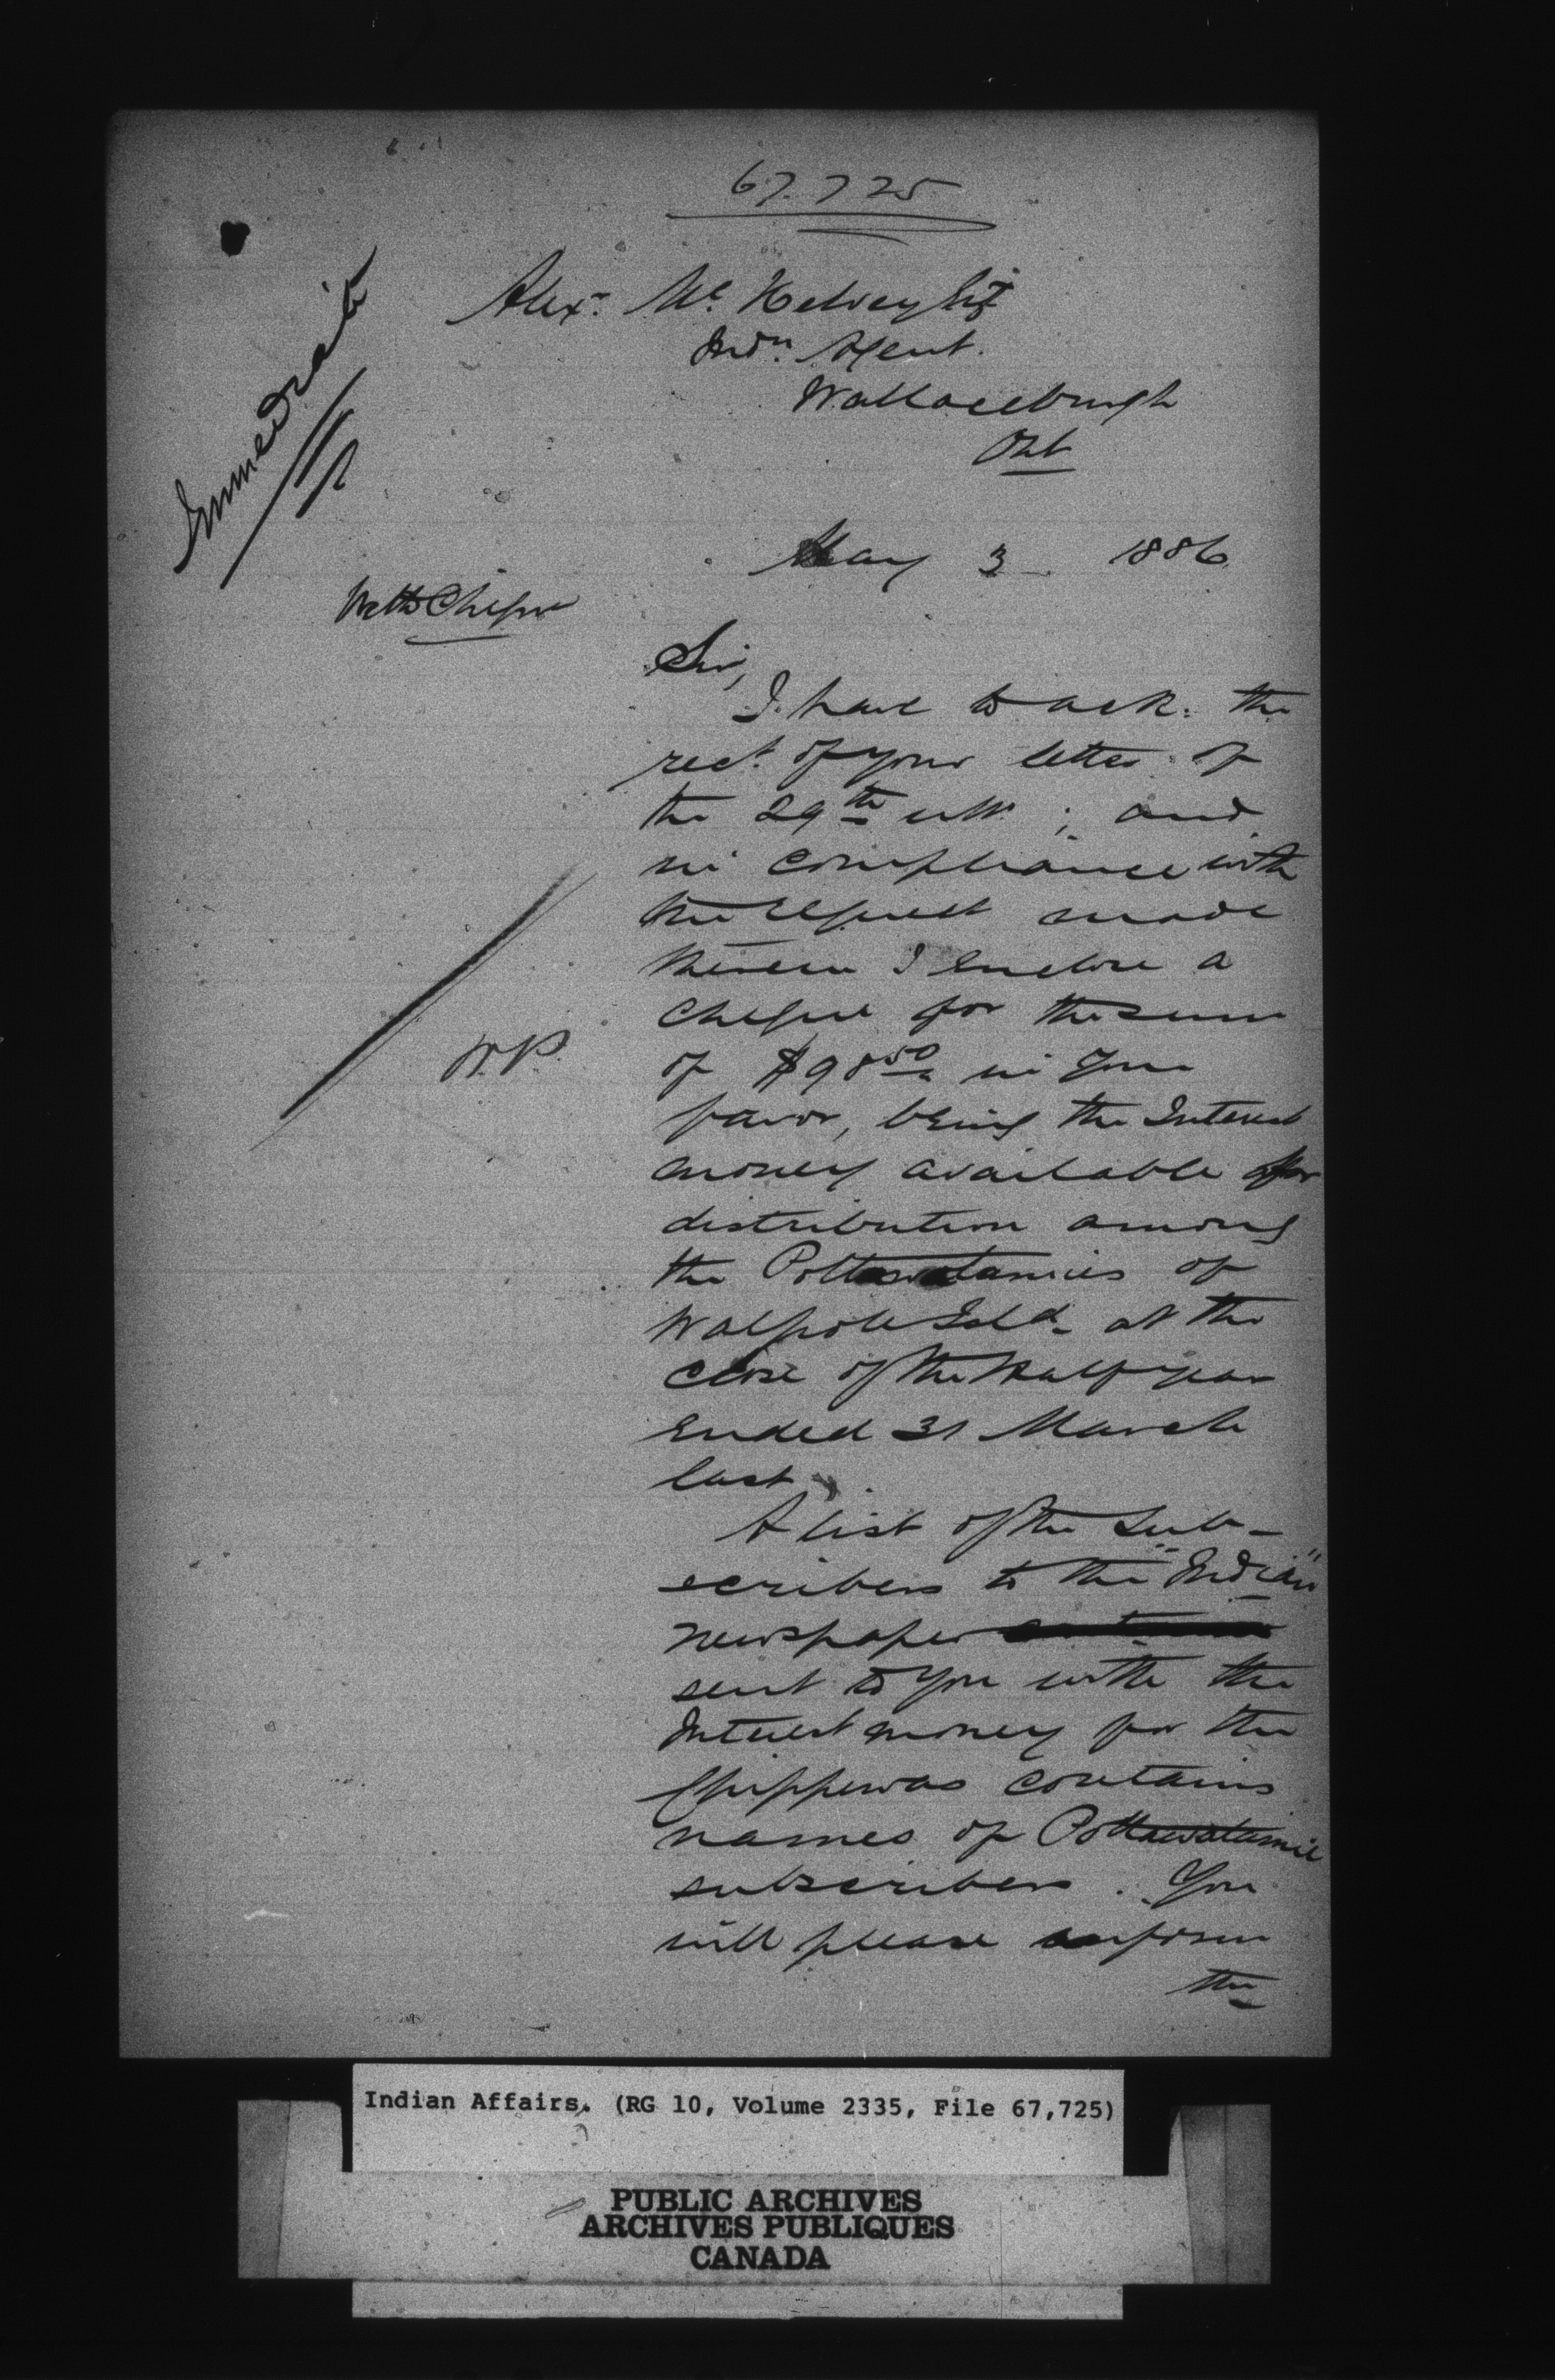 67.725
Immediate
Alexr. McKelvey Esq
Indn. Agent.
Wallaceburgh
Ont
May 3 1886
With Cheque
Sir,
I have to ack: the
rect. of your letter of
the 29th ult. ; and
in compliance with
the request made
therein I enclose a
cheque for the sum
of $98 50 in your
favor, being the Interest
money available for
distribution among
the Pottawatamies of
Walpole Isld. at the
close of the half year
ended 31 March
last.
A list of the sub-
scribers to the "Indian"
newspaper
sent to you with the
Interest money for the
Chippewas contains
names of Pottawatamie
subscribers. You
will please inform
the
Indian Affairs. (RG 10, Volume 2335, File 67,725)
PUBLIC ARCHIVES
ARCHIVES PUBLIQUES
CANADA